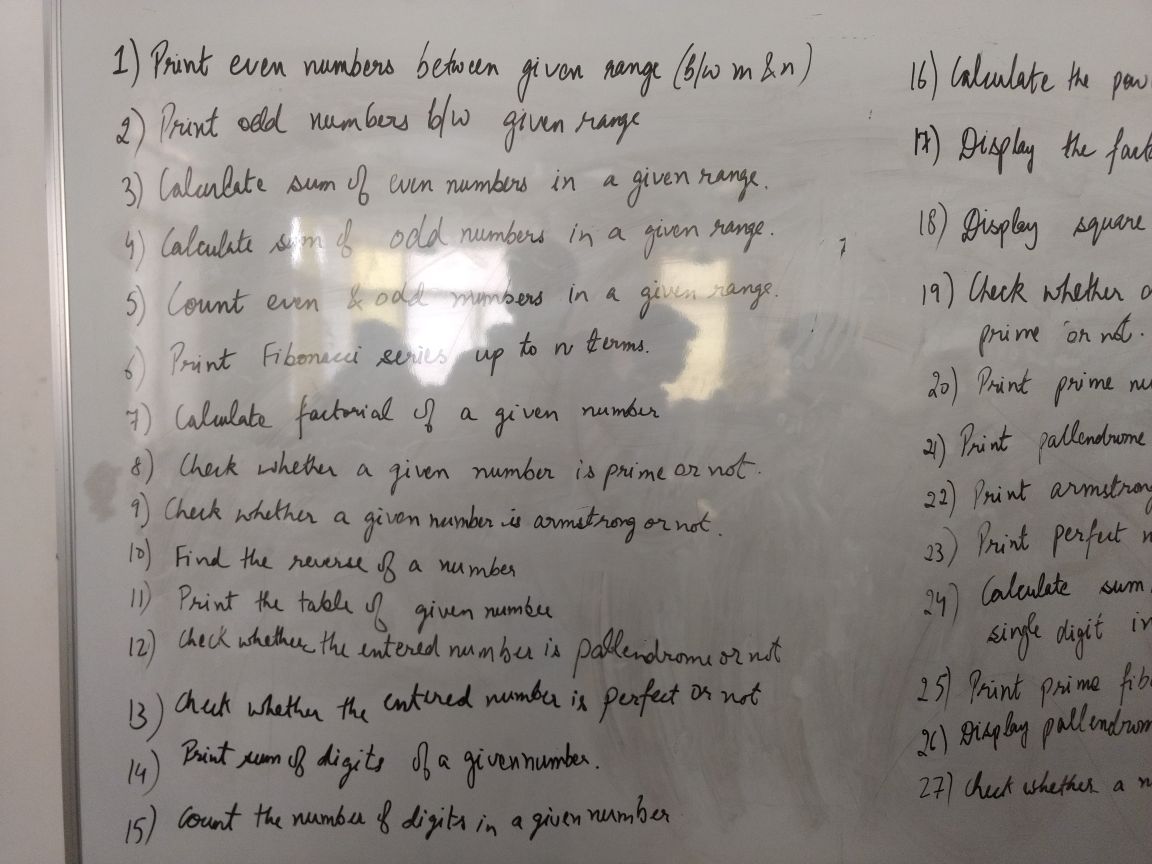 1) Print even numbers between given range (b/w m & n)
2) Print odd numbers b/w given range
3) Calculate sum of even numbers in a given range.
4) Calculate sum of odd numbers in a given range.
5) Count even & odd numbers in a given range.
6) Print Fibonacci series up to n terms.
7) Calculate factorial of a given number
8) Check whether a given number is prime or not.
9) Check whether a given number is armstrong or not.
10) Find the reverse of a number
11) Print the table of given number
12) Check whether the entered number is pallendrome or not
13) Check whether the entered number is perfect or not
14) Print sum of digits of a given number.
15) Count the number of digits in a given number
16) Calculate the pow
17) Display the fact
18) Display square
19) Check whether a
prime or not.
20) Print prime nu
21) Print pallendrome
22) Print armstrong
23) Print perfect n
24) Calculate sum
single digit in
25) Print prime fib
26) Display pallendrom
27) Check whether a n